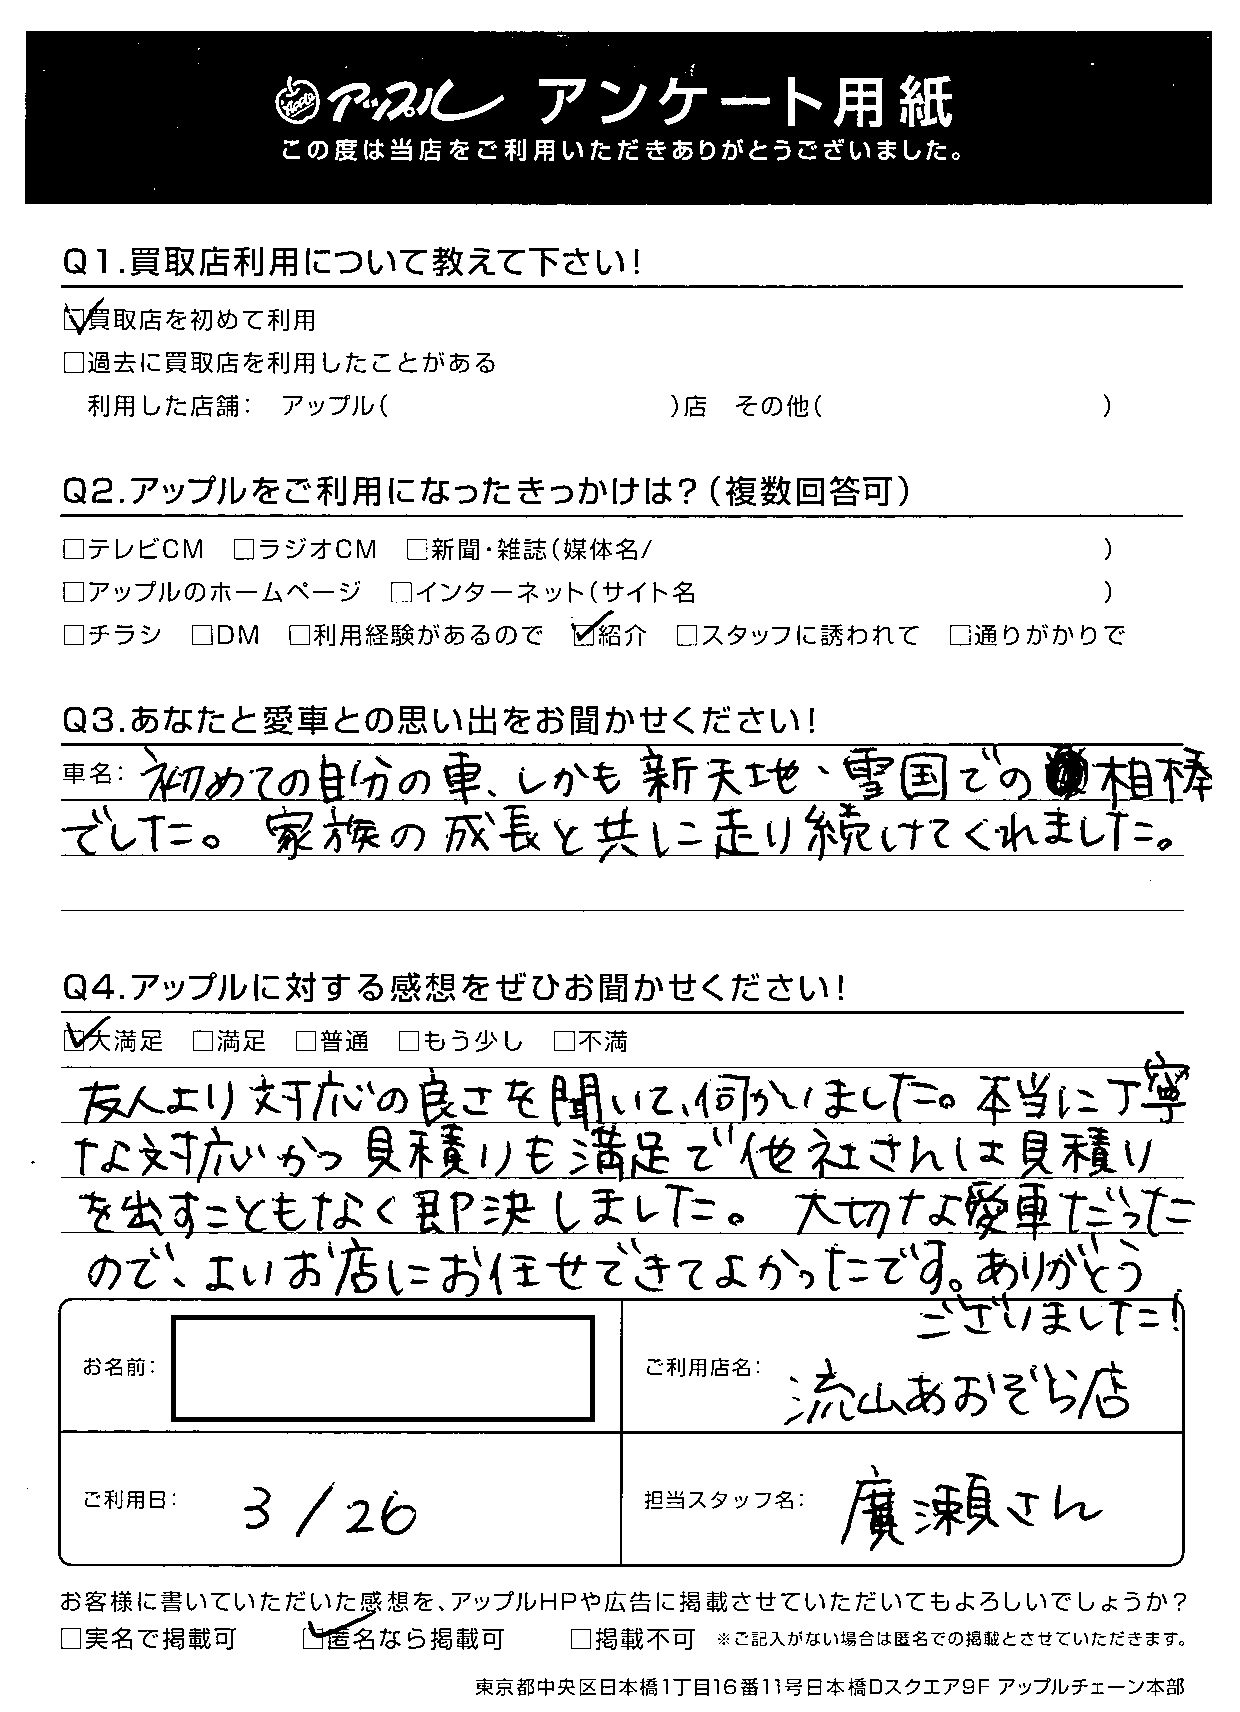 Apple アップル アンケート用紙
この度は当店をご利用いただきありがとうございました。
Q1.買取店利用について教えて下さい!
☑買取店を初めて利用
□過去に買取店を利用したことがある
利用した店舗: アップル( )店 その他( )
Q2.アップルをご利用になったきっかけは?(複数回答可)
□テレビCM □ラジオCM □新聞・雑誌(媒体名/ )
□アップルのホームページ □インターネット(サイト名 )
□チラシ □DM □利用経験があるので ☑紹介 □スタッフに誘われて □通りがかりで
Q3.あなたと愛車との思い出をお聞かせください!
車名: 初めての自分の車、しかも新天地、雪国での相棒
でした。家族の成長と共に走り続けてくれました。
Q4.アップルに対する感想をぜひお聞かせください!
☑大満足 □満足 □普通 □もう少し □不満
友人より対応の良さを聞いて、伺いました。本当に丁寧
な対応かつ見積りも満足で他社さんは見積り
を出すこともなく即決しました。大切な愛車だった
ので、よいお店にお任せできてよかったです。ありがとう
ございました!
お名前:
ご利用店名: 流山あおぞら店
ご利用日: 3/26
担当スタッフ名: 廣瀬さん
お客様に書いていただいた感想を、アップルHPや広告に掲載させていただいてもよろしいでしょうか?
□実名で掲載可 ☑匿名なら掲載可 □掲載不可 ※ご記入がない場合は匿名での掲載とさせていただきます。
東京都中央区日本橋1丁目16番11号日本橋Dスクエア9F アップルチェーン本部